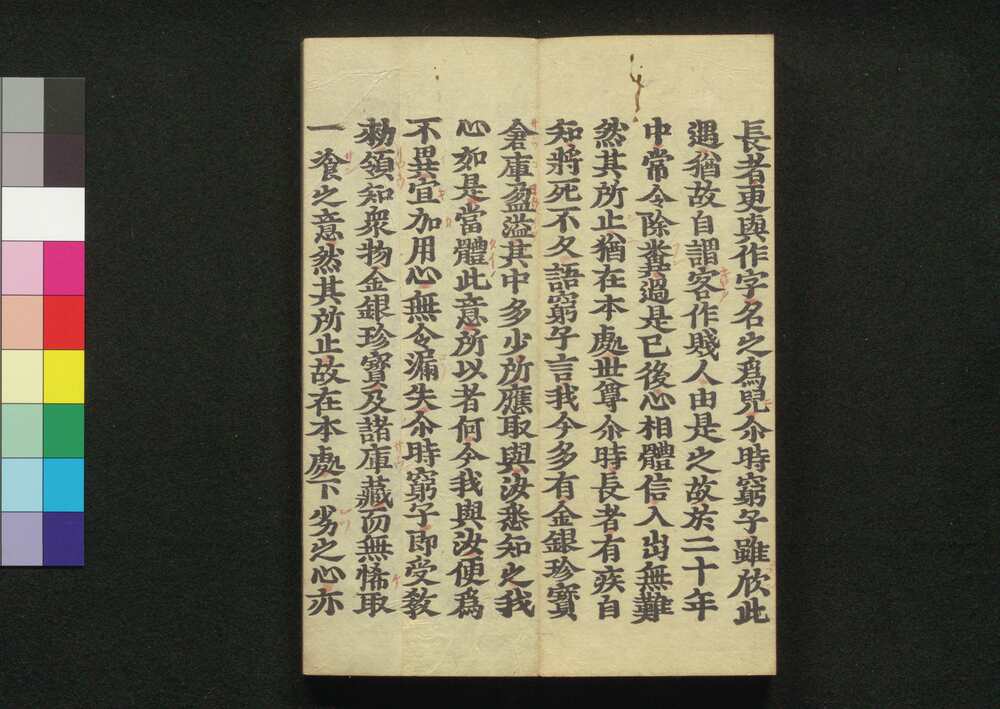 長者更與作字名之爲兒尒時窮子雖欣此
遇猶故自謂客作賤人由是之故於二十年
中常令除糞過是已後心相體信入出無難
然其所止猶在本處世尊尒時長者有疾自
知將死不久語窮子言我今多有金銀珍寶
倉庫盈溢其中多少所應取與汝悉知之我
心如是當體此意所以者何今我與汝便爲
不異宜加用心無令漏失尒時窮子即受敎
勑領知衆物金銀珍寶及諸庫藏而無悕取
一飡之意然其所止故在本處下劣之心亦